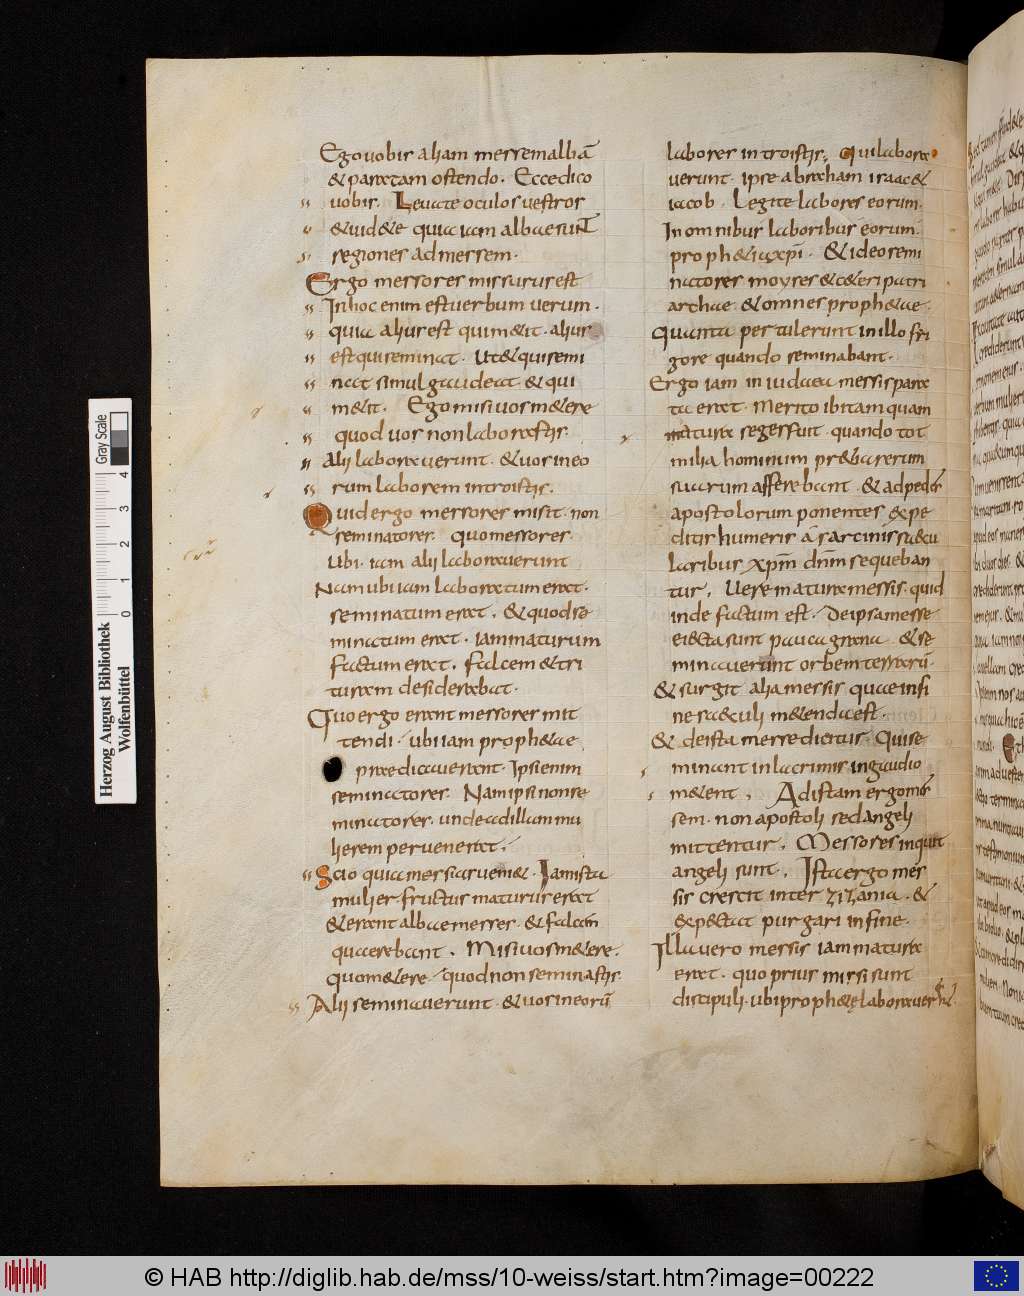 Ego uobis aliam messem albā
& paratam ostendo. Ecce dico
uobis. Leuate oculos uestros
& uid&e quia iam albae sunt
segiones ad messem.
Ergo messores missurus est
In hoc enim est uerbum uerum.
quia alius est qui m&it. alius
est qui seminat. Ut & qui semi
nat simul gaudeat. & qui
m&it. Ego misi uos m&ere
quod uos non laborastis.
Alii laborauerunt. & uos in eo
rum laborem introistis.
Quid ergo messores misit. non
seminatores. quo messores
Ubi iam alii laborauerunt
Nam ubi iam laboratum erat.
seminatum erat. & quod se
minatum erat. iam maturum
factum erat. falcem & tri
turam desiderabat.
Quo ergo erant messores mit
tendi. ubi iam proph&ae
praedicauerant. Ipsi enim
seminatores. Nam ipsi non se
minatores. unde ad illam mu
lierem peruenerat.
Scio quia messias ueni&. Iam ista
mulier fructus maturus erat
& erant albae messes. & falcem
quaerebant. Misi uos m&ere.
quo m&ere. quod non seminastis.
Alii seminauerunt. & uos in eorū
labores introistis. Qui labora
uerunt. ipse abraham isaac &
iacob. Legite labores eorum.
In omnibus laboribus eorum.
proph&ia xpi. & ideo semi
natores moyses & c&eri patri
archae & omnes proph&ae.
Quanta pertulerunt in illo fri
gore quando seminabant.
Ergo iam in iudaea messis para
ta erat. Merito ibi tam quam
matura seges fuit. quando tot
milia hominum pr&ia rerum
suarum afferebant. & ad pedes
apostolorum ponentes. expe
ditis humeris a sarcinis saecu
laribus xpm dnm sequeban
tur. Uere matura messis. quid
inde factum est. De ipsa messe
eiecta sunt pauca grana. & se
minauerunt orbem terrarū.
& surgit alia messis quae in fi
ne saeculi m&enda est.
& de ista messe dicitur. Qui se
minant in lacrimis in gaudio
m&ent. Ad istam ergo mes
sem. non apostoli sed angeli
mittentur. Messores inquit
angeli sunt. Ista ergo mes
sis crescit inter zizania. &
exp&tat purgari in fine.
Illa uero messis iam matura
erat. quo prius missi sunt
discipuli. ubi proph&ę laborauer
Herzog August Bibliothek
Wolfenbüttel
Gray Scale
0 1 2 3 4
© HAB http://diglib.hab.de/mss/10-weiss/start.htm?image=00222